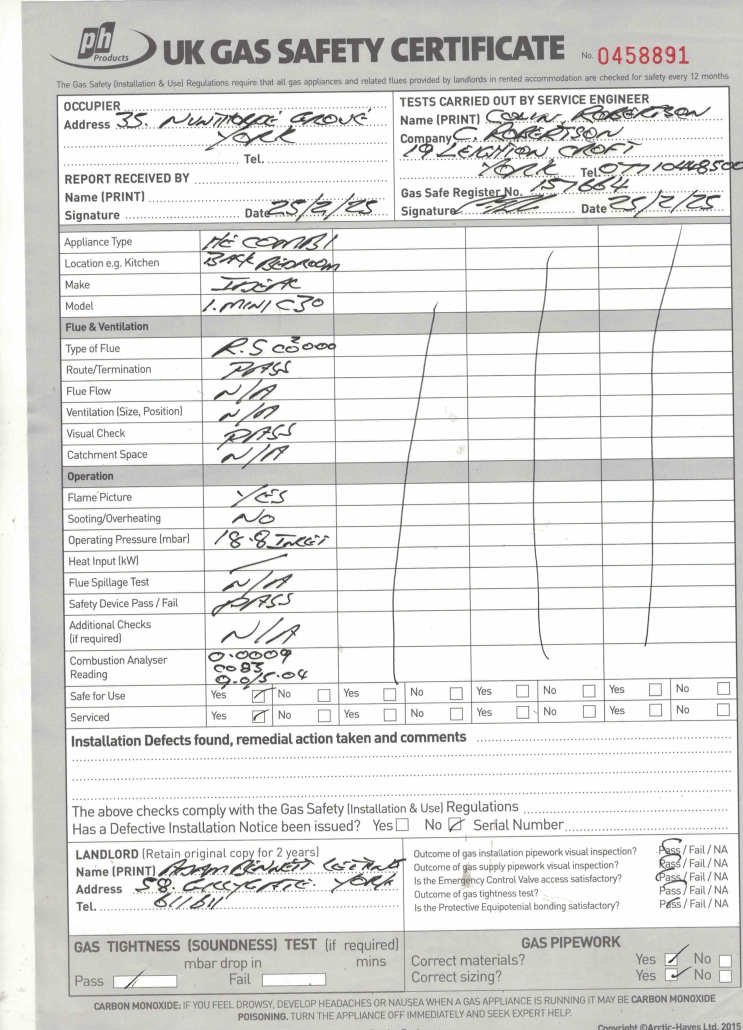 ph Products UK GAS SAFETY CERTIFICATE No. 0458891
The Gas Safety (Installation & Use) Regulations require that all gas appliances and related flues provided by landlords in rented accommodation are checked for safety every 12 months
OCCUPIER
Address 35. NUNTHORPE GROVE
YORK
Tel.
REPORT RECEIVED BY
Name (PRINT)
Signature Date 25/2/25
TESTS CARRIED OUT BY SERVICE ENGINEER
Name (PRINT) COLIN. ROBERTSON
Company C, ROBERTSON
19 LEIGHTON CROFT
YORK Tel. 07710448500
Gas Safe Register No. 157664
Signature Date 25/2/25
Appliance Type HE COMBI
Location e.g. Kitchen BACK BEDROOM
Make IDEAL
Model 1. MINI C30
Flue & Ventilation
Type of Flue R.S
Route/Termination PASS
Flue Flow N/A
Ventilation (Size, Position) N/A
Visual Check PASS
Catchment Space N/A
Operation
Flame Picture YES
Sooting/Overheating NO
Operating Pressure (mbar) 18.8 INLET
Heat Input (kW)
Flue Spillage Test N/A
Safety Device Pass / Fail PASS
Additional Checks (if required) N/A
Combustion Analyser Reading 0.0009
CO 83
Safe for Use Yes No Yes No Yes No Yes No
Serviced Yes No Yes No Yes No Yes No
Installation Defects found, remedial action taken and comments
The above checks comply with the Gas Safety (Installation & Use) Regulations
Has a Defective Installation Notice been issued? Yes No Serial Number
LANDLORD (Retain original copy for 2 years)
Name (PRINT) ADAM BENNETT LETTINGS
Address 58. GILLYGATE. YORK
Tel. 611611
Outcome of gas installation pipework visual inspection? Pass / Fail / NA
Outcome of gas supply pipework visual inspection? Pass / Fail / NA
Is the Emergency Control Valve access satisfactory? Pass / Fail / NA
Outcome of gas tightness test? Pass / Fail / NA
Is the Protective Equipotential bonding satisfactory? Pass / Fail / NA
GAS TIGHTNESS (SOUNDNESS) TEST (if required)
mbar drop in mins
Pass Fail
GAS PIPEWORK
Correct materials? Yes No
Correct sizing? Yes No
CARBON MONOXIDE: IF YOU FEEL DROWSY, DEVELOP HEADACHES OR NAUSEA WHEN A GAS APPLIANCE IS RUNNING IT MAY BE CARBON MONOXIDE
POISONING. TURN THE APPLIANCE OFF IMMEDIATELY AND SEEK EXPERT HELP.
Copyright ©Arctic-Hayes Ltd. 2015